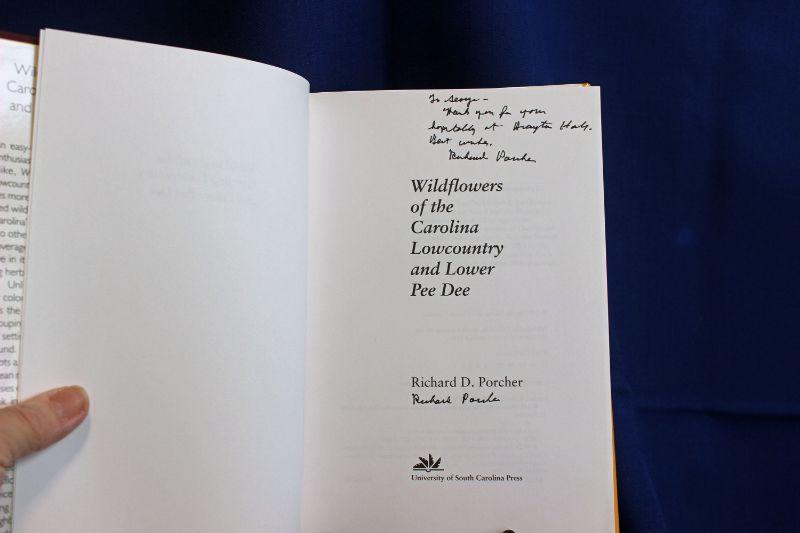 Wil
Caro
and
To George –
Thank you for your
hospitality at Drayton Hall.
Best wishes,
Richard Porcher
Wildflowers
of the
Carolina
Lowcountry
and Lower
Pee Dee
Richard D. Porcher
Richard Porcher
University of South Carolina Press